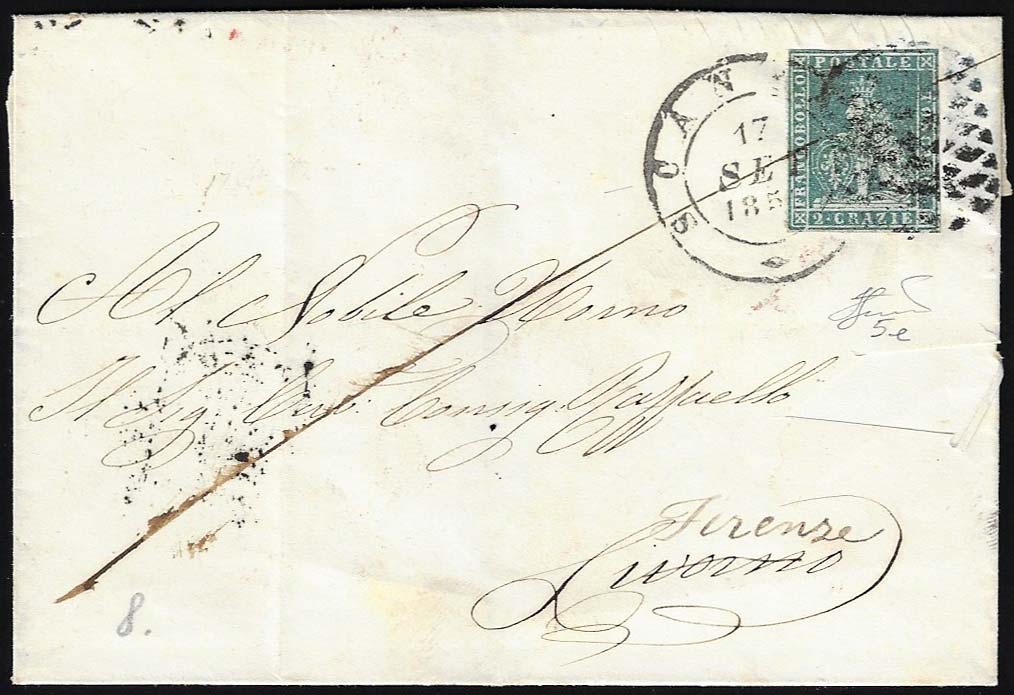 SCAN
17
SE
185
FRANCOBOLLO POSTALE
2 CRAZIE
Al Nobile Uomo
Il Sig Cav Consig Raffaello
Firenze
Livorno
5e
8.